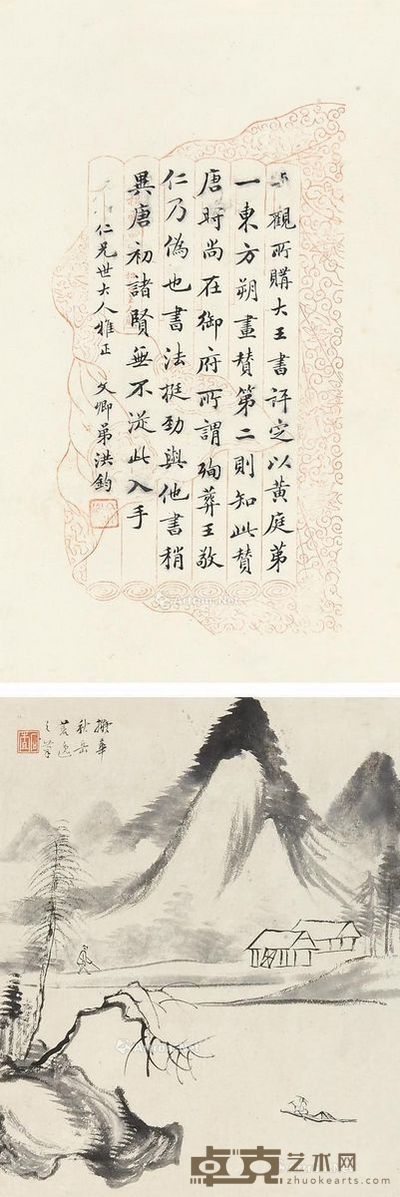 觀所購大王書評定以黃庭第
一東方朔畫贊第二則知此贊
唐時尚在御府所謂殉葬王敬
仁乃偽也書法挺勁與他書稍
異唐初諸賢無不從此入手
仁兄世大人雅正 文卿弟洪鈞
擬華
秋岳
蒼逸
之筆
Artron.Net
卓克艺术网
zhuokearts.com